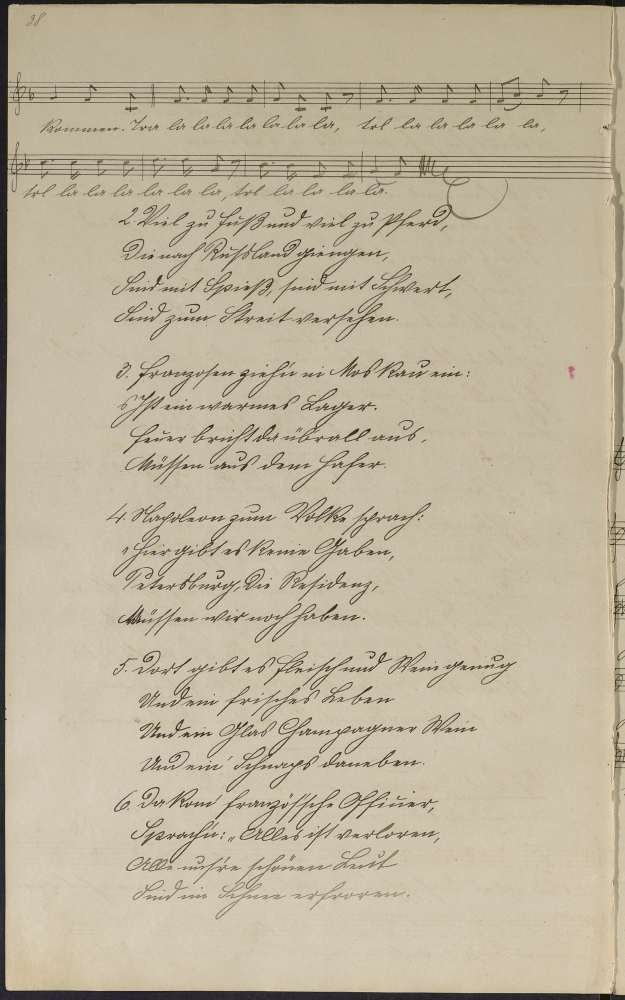 38
kommen. Tra la la la la la la la, tol la la la la la,
tol la la la la la la la, tol la la la la.
2. Viel zu Fuß und viel zu Pferd,
Die nach Russland giengen,
Sind mit Spieß, sind mit Schwert,
Sind zum Streit versehen.
3. Franzosen zieh'n in Moskau ein:
's Ist ein warmes Lager.
Feuer bricht da überall aus,
Müssen aus dem Hafer.
4. Napoleon zum Volke sprach:
„Hier gibt es keine Gaben,
Petersburg, die Residenz,
Müssen wir noch haben.
5. Dort gibt es Fleisch und Wein genug
Und ein frisches Leben
Und ein Glas Champagner Wein
Und ein' Schnaps daneben.
6. Da kom̄ französ'sche Offizier,
Sprach'n: „Alles ist verloren,
Alle uns're schönen Leut
Sind im Schnee erfroren.